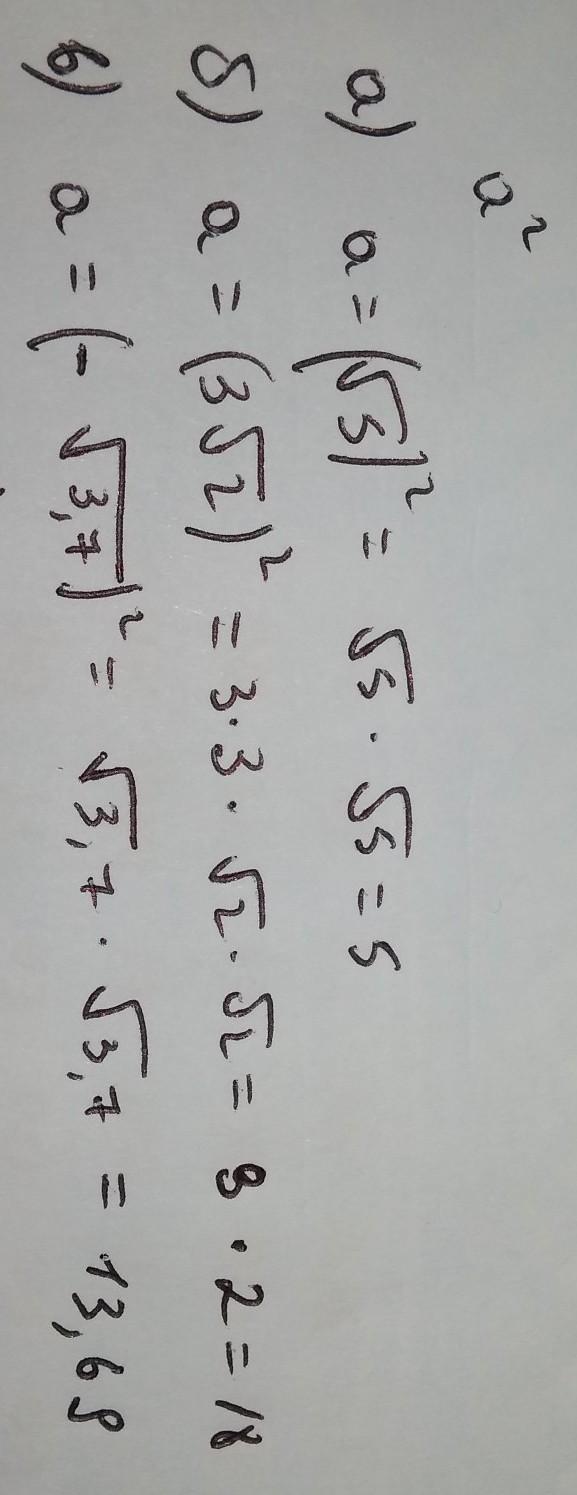 a²
а) a = (√5)² = √5 · √5 = 5
б) a = (3√2)² = 3·3 · √2 · √2 = 9 · 2 = 18
в) a = (-√3,7)² = √3,7 · √3,7 = 13,69